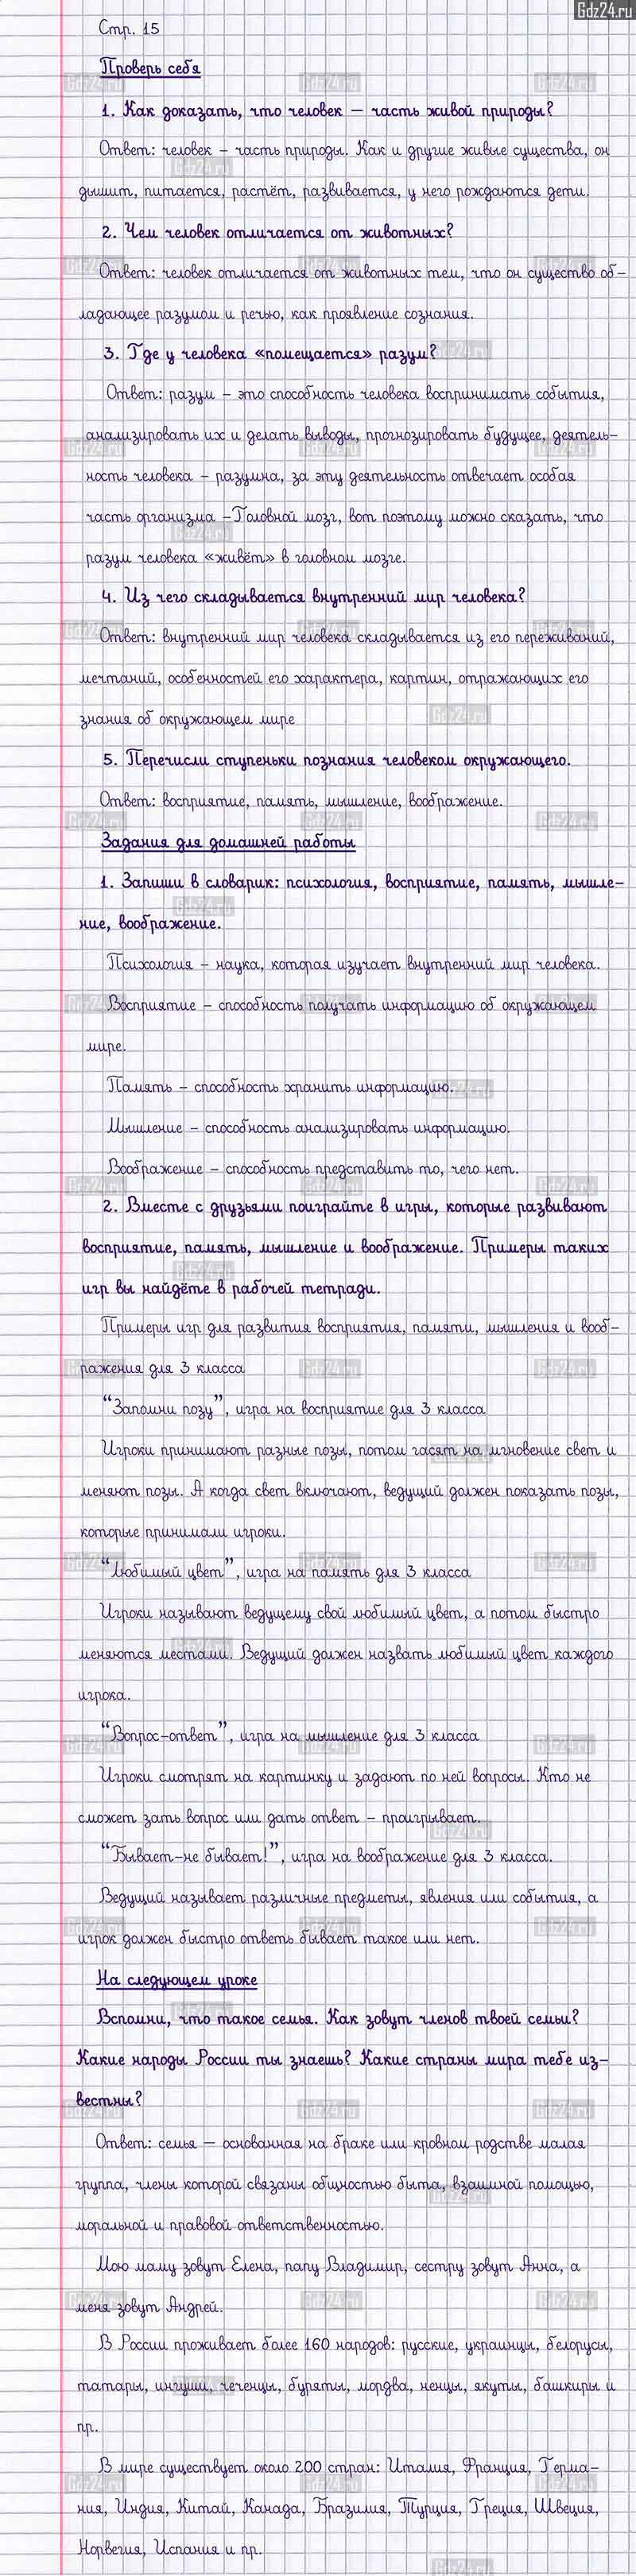 Gdz24.ru
Стр. 15
Проверь себя
1. Как доказать, что человек – часть живой природы?
Ответ: человек – часть природы. Как и другие живые существа, он
дышит, питается, растёт, развивается, у него рождаются дети.
2. Чем человек отличается от животных?
Ответ: человек отличается от животных тем, что он существо об-
ладающее разумом и речью, как проявление сознания.
3. Где у человека «помещается» разум?
Ответ: разум – это способность человека воспринимать события,
анализировать их и делать выводы, прогнозировать будущее, деятель-
ность человека – разумна, за эту деятельность отвечает особая
часть организма –Головной мозг, вот поэтому можно сказать, что
разум человека «живёт» в головном мозге.
4. Из чего складывается внутренний мир человека?
Ответ: внутренний мир человека складывается из его переживаний,
мечтаний, особенностей его характера, картин, отражающих его
знания об окружающем мире
5. Перечисли ступеньки познания человеком окружающего.
Ответ: восприятие, память, мышление, воображение.
Задания для домашней работы
1. Запиши в словарик: психология, восприятие, память, мышле-
ние, воображение.
Психология – наука, которая изучает внутренний мир человека.
Восприятие – способность получать информацию об окружающем
мире.
Память – способность хранить информацию.
Мышление – способность анализировать информацию.
Воображение – способность представить то, чего нет.
2. Вместе с друзьями поиграйте в игры, которые развивают
восприятие, память, мышление и воображение. Примеры таких
игр вы найдёте в рабочей тетради.
Примеры игр для развития восприятия, памяти, мышления и вооб-
ражения для 3 класса
“Запомни позу”, игра на восприятие для 3 класса
Игроки принимают разные позы, потом гасят на мгновение свет и
меняют позы. А когда свет включают, ведущий должен показать позы,
которые принимали игроки.
“Любимый цвет”, игра на память для 3 класса
Игроки называют ведущему свой любимый цвет, а потом быстро
меняются местами. Ведущий должен назвать любимый цвет каждого
игрока.
“Вопрос-ответ”, игра на мышление для 3 класса
Игроки смотрят на картинку и задают по ней вопросы. Кто не
сможет зать вопрос или дать ответ – проигрывает.
“Бывает-не бывает!”, игра на воображение для 3 класса.
Ведущий называет различные предметы, явления или события, а
игрок должен быстро ответь бывает такое или нет.
На следующем уроке
Вспомни, что такое семья. Как зовут членов твоей семьи?
Какие народы России ты знаешь? Какие страны мира тебе из-
вестны?
Ответ: семья – основанная на браке или кровном родстве малая
группа, члены которой связаны общностью быта, взаимной помощью,
моральной и правовой ответственностью.
Мою маму зовут Елена, папу Владимир, сестру зовут Анна, а
меня зовут Андрей.
В России проживает более 160 народов: русские, украинцы, белорусы,
татары, ингуши, чеченцы, буряты, мордва, ненцы, якуты, башкиры и
пр.
В мире существует около 200 стран: Италия, Франция, Герма-
ния, Индия, Китай, Канада, Бразилия, Турция, Греция, Швеция,
Норвегия, Испания и пр.